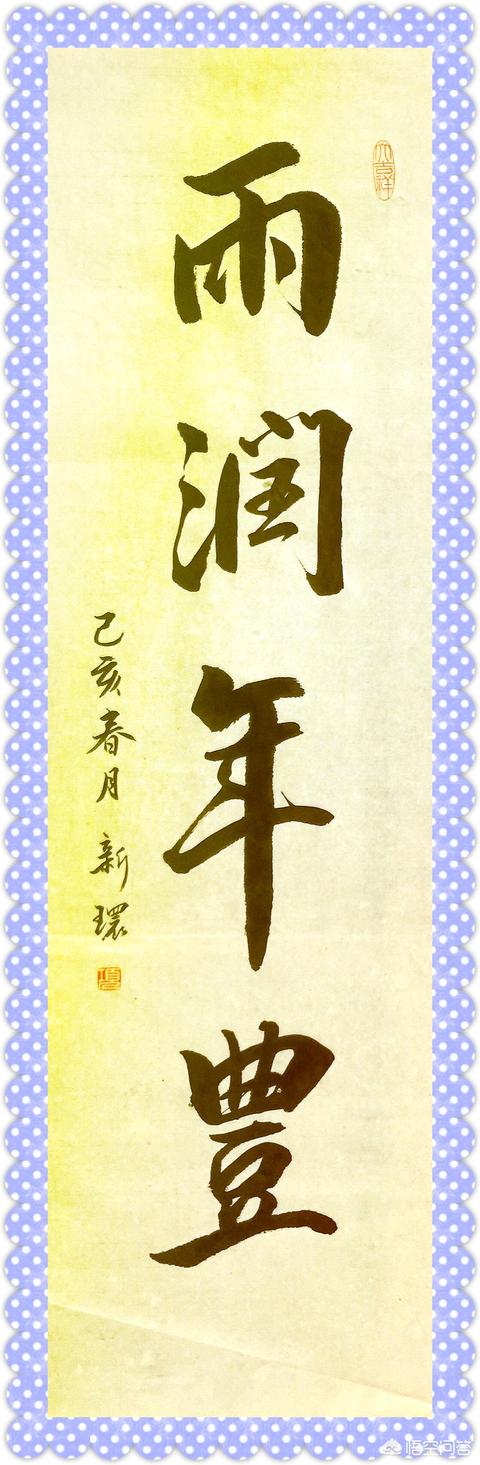 雨潤年豐
己亥春月 新環
大吉祥
悟空问答